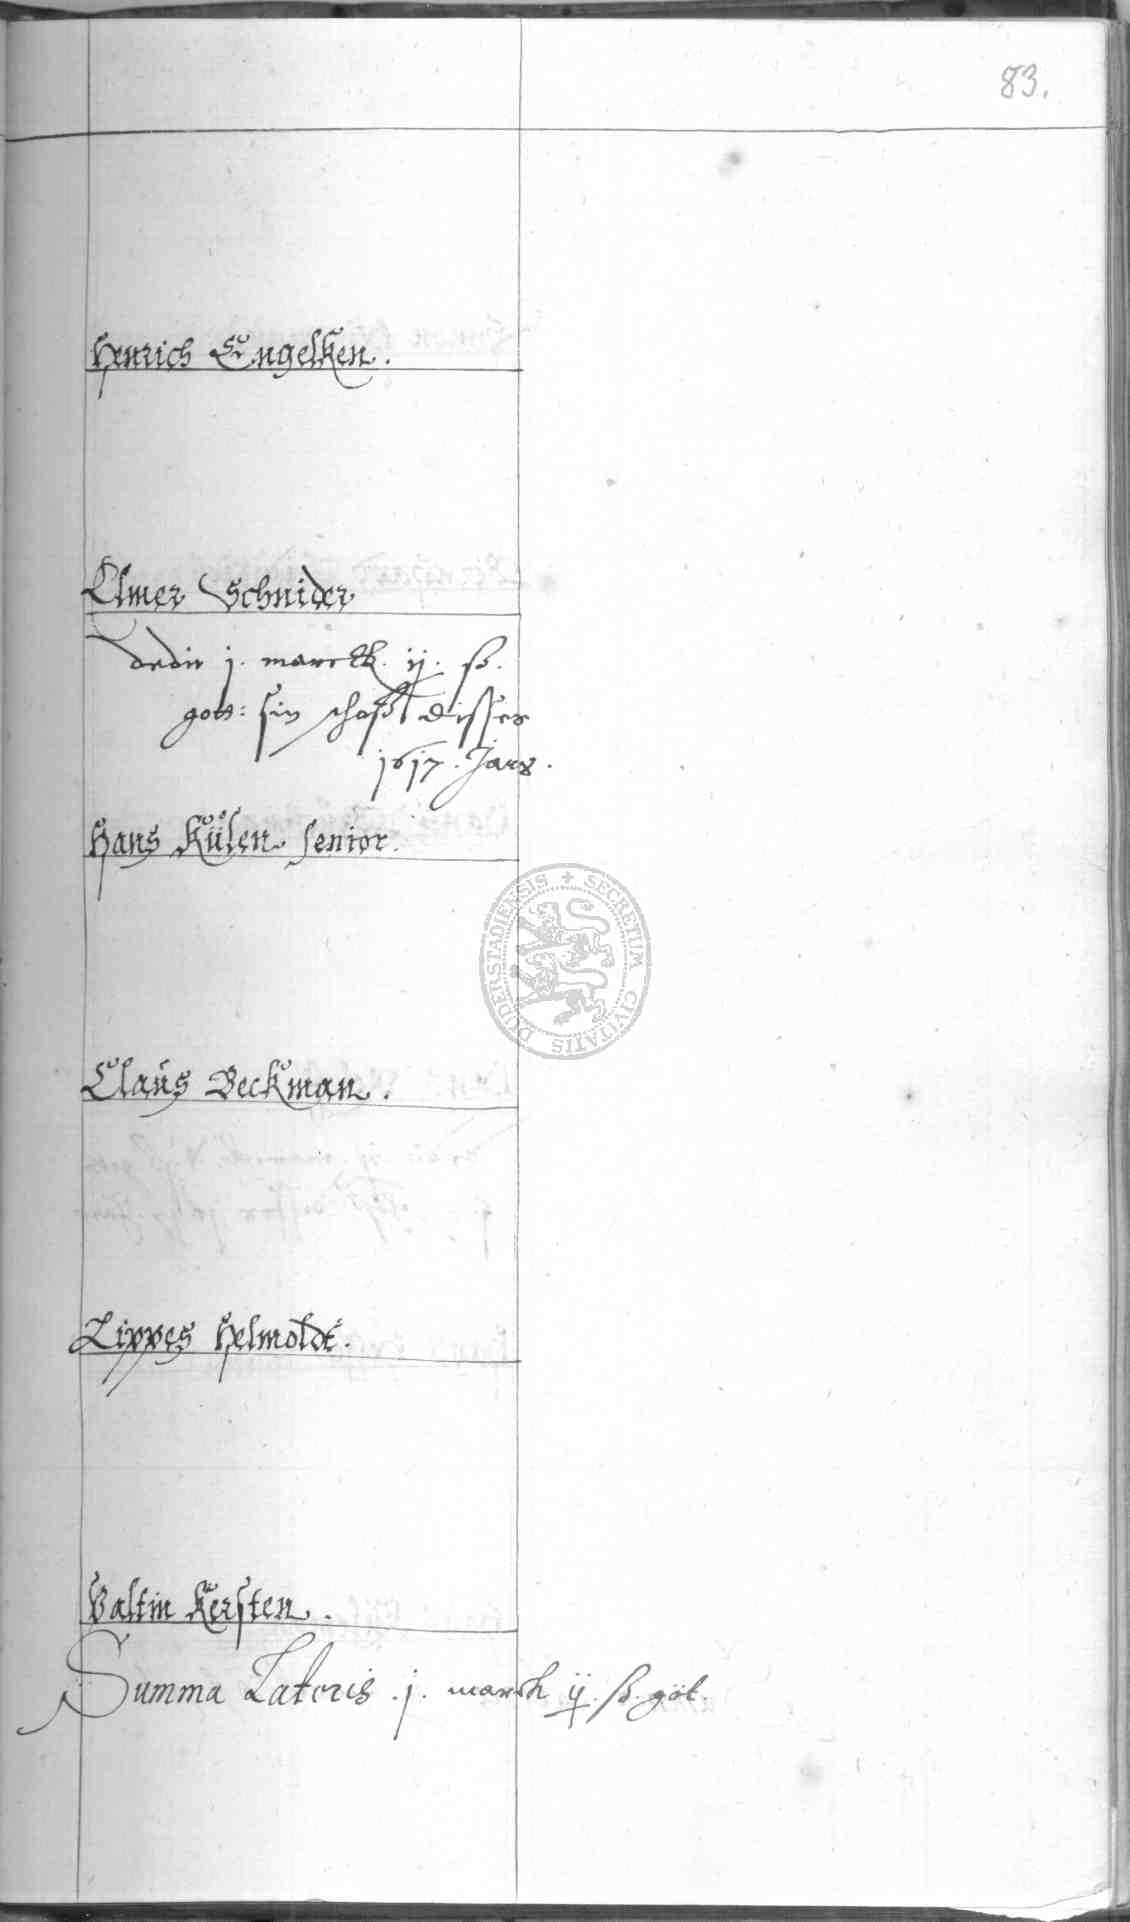 83.
Henrich Engelken.
Elmer Schnider
dedit j. marck. ij. ß.
gott: sin schoß disser
1617. Jars.
Hans Külen senior.
DUDERSTADIENSIS + SECRETUM CIVITATIS
Claus Beckman.
Lippes Helmoldt.
Valtin Kersten.
Summa Lateris .j. marck ij. ß. göt.